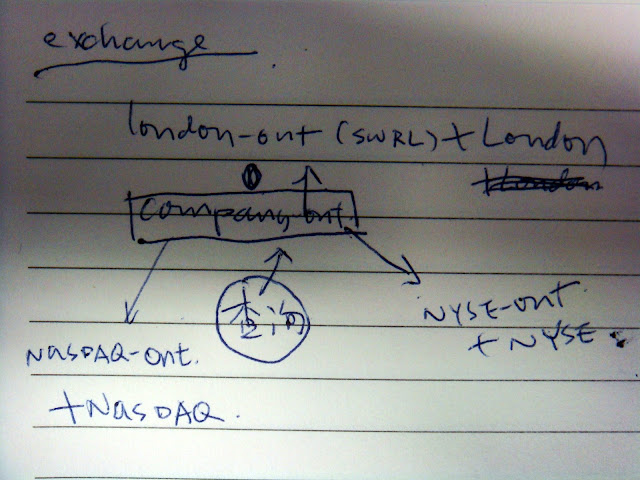 exchange
london-ont (SWRL) + London
+London
company ont.
查询
NYSE-ont
+ NYSE
NasDAQ-ont.
+NasDAQ.